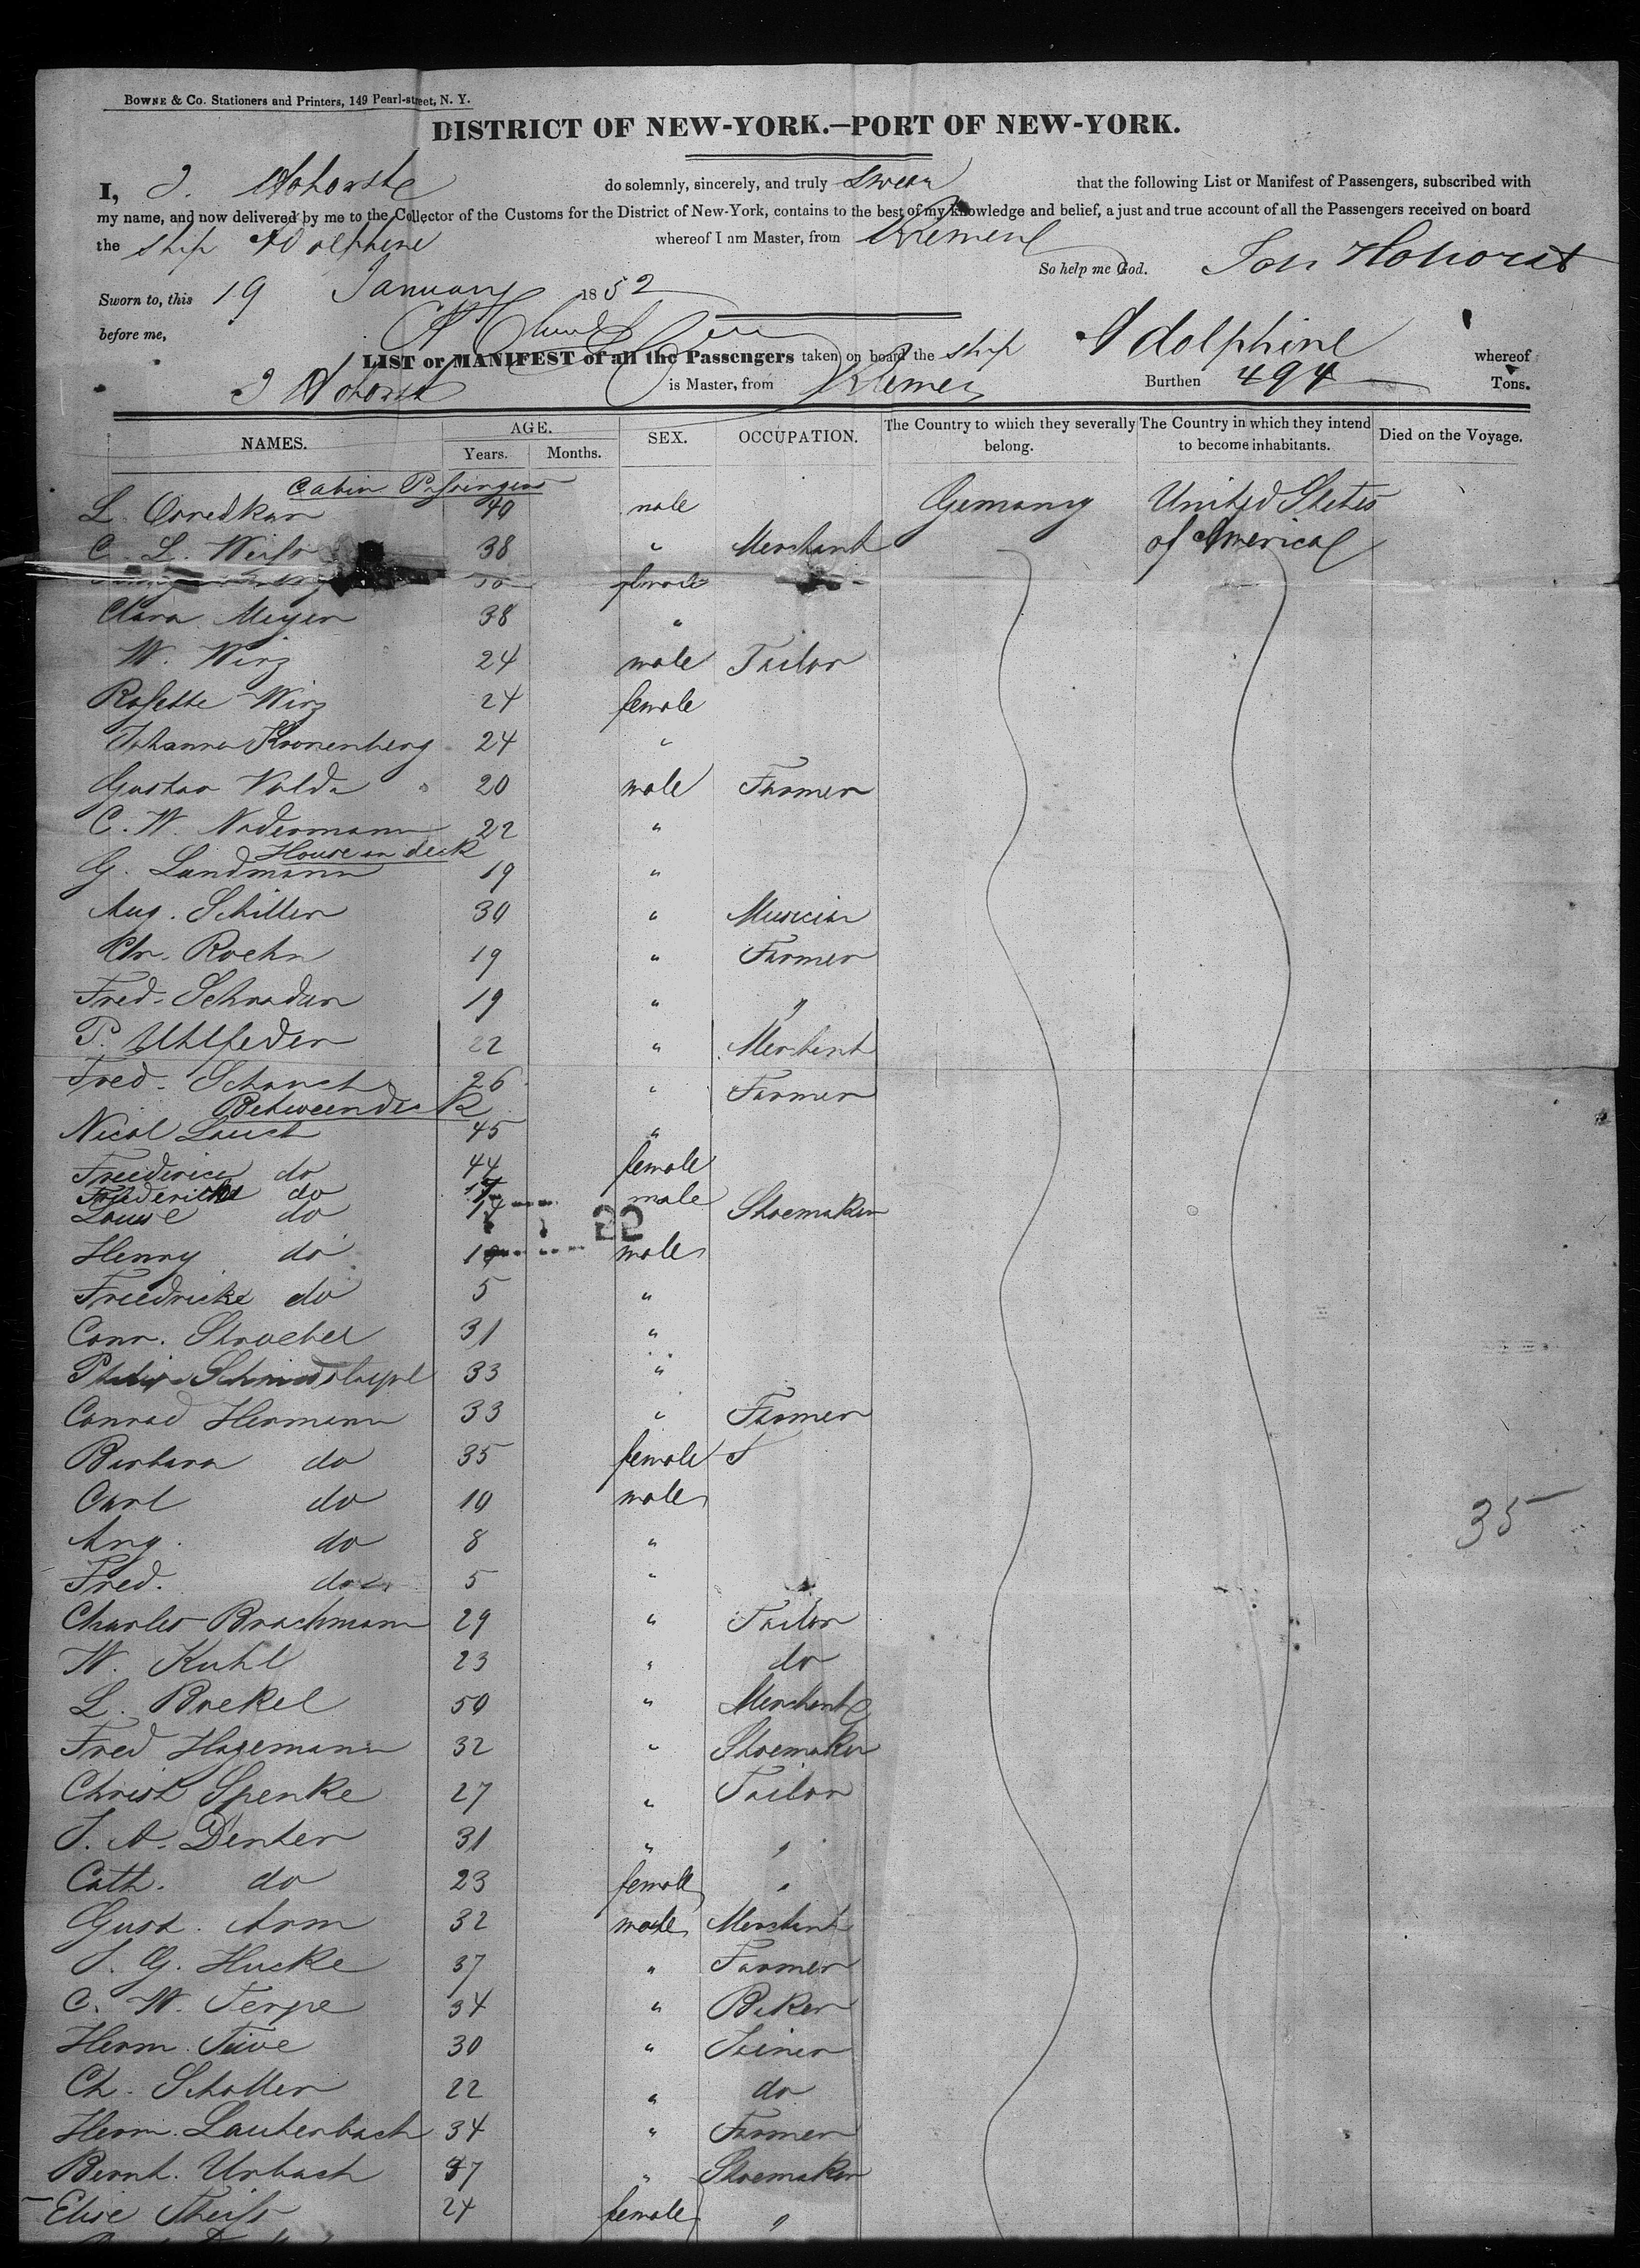 BOWNE & Co. Stationers and Printers, 149 Pearl-street, N. Y.
DISTRICT OF NEW-YORK.—PORT OF NEW-YORK.
I, J. Hohorst do solemnly, sincerely, and truly swear that the following List or Manifest of Passengers, subscribed with
my name, and now delivered by me to the Collector of the Customs for the District of New-York, contains to the best of my knowledge and belief, a just and true account of all the Passengers received on board
the ship Adolphine whereof I am Master, from Bremen
So help me God. Joh Hohorst
Sworn to, this 19 January 1852
before me,
LIST or MANIFEST of all the Passengers taken on board the ship Adolphine whereof
J Hohorst is Master, from Bremen Burthen 494 Tons.
NAMES. AGE. Years. Months. SEX. OCCUPATION. The Country to which they severally belong. The Country in which they intend to become inhabitants. Died on the Voyage.
Cabin Passengers
L. 40 male Gemany United States
C. L. Weiss 38 " Merchant of America
female
Clara Meyer 38 "
W. Wirz 24 male Tailor
Rosette Wirz 24 female
Johanna Kronenberg 24 "
Gustav 20 male Farmer
C. W. Nadermann 22 "
House on deck
G. Landmann 19 "
Aug. Schiller 30 " Musician
Chr. Roehn 19 " Farmer
Fred. Schrader 19 " "
P. Uhlfelder 22 " Merchant
Fred. Schauch 26 " Farmer
Betweendeck
Nicol Lauch 45 "
Freederica do 44 female
Friederich do 17 male Shoemaker
Louise do
22
Henry do male
Freedricke do 5 "
Conr. Stroebel 31 "
Philip 33 "
Conrad Hermann 33 " Farmer
Barbara do 35 female
Carl do 10 male
Aug. do 8 "
Fred. do 5 "
35
Charles Brachmann 29 " Tailor
W. Kuhl 23 " do
L. Brekel 50 " Merchant
Fred Hagemann 32 " Shoemaker
Christ Spenke 27 " Tailor
J. A. Denter 31 " "
Cath. do 23 female "
Gust. Arm 32 male Merchant
J. G. Hucke 37 " Farmer
C. W. Terpe 34 " Baker
Herm. Tuve 30 " Joiner
Ch. Scholler 22 " do
Herm. Lauterbach 34 " Farmer
Bernh. Urbach 37 " Shoemaker
Elise Theiss 24 female "